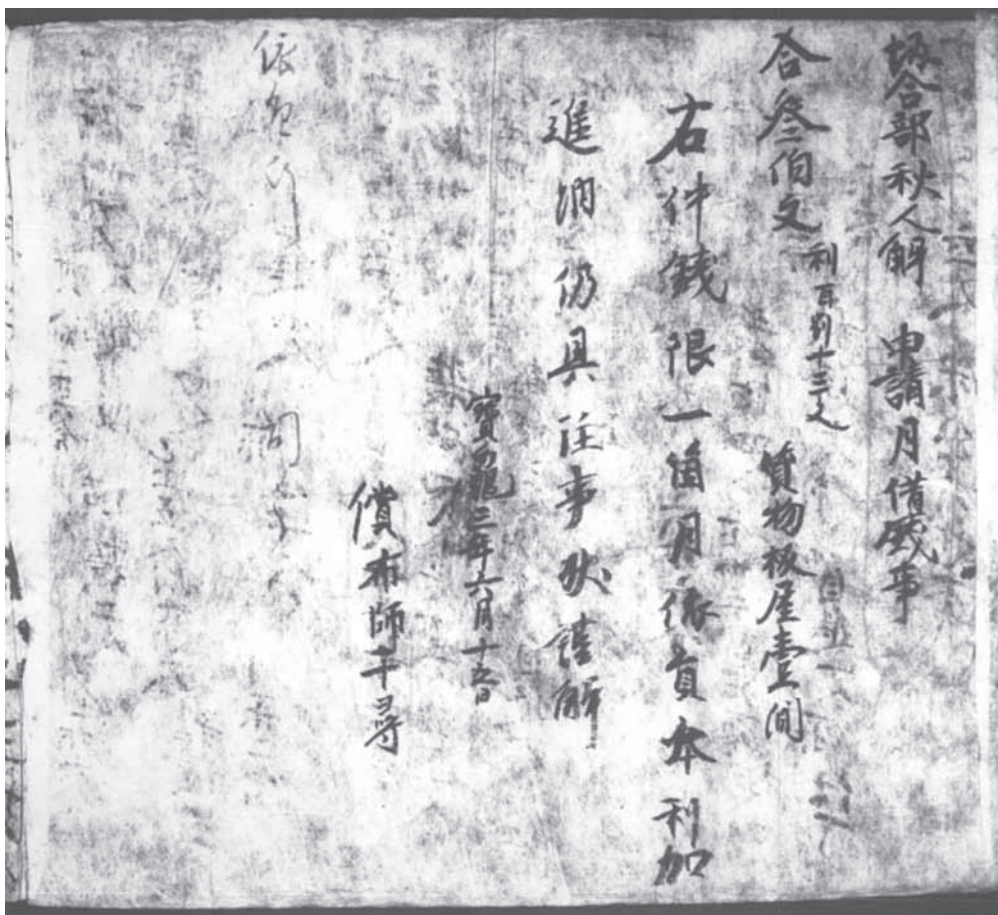 坂合部秋人解 申請月借錢事
合叄伯文 利百別十三文 質物板屋壹間
右件錢限一箇月依員本利加
進納仍具注事狀謹解
寶龜三年六月十五日
償布師千尋